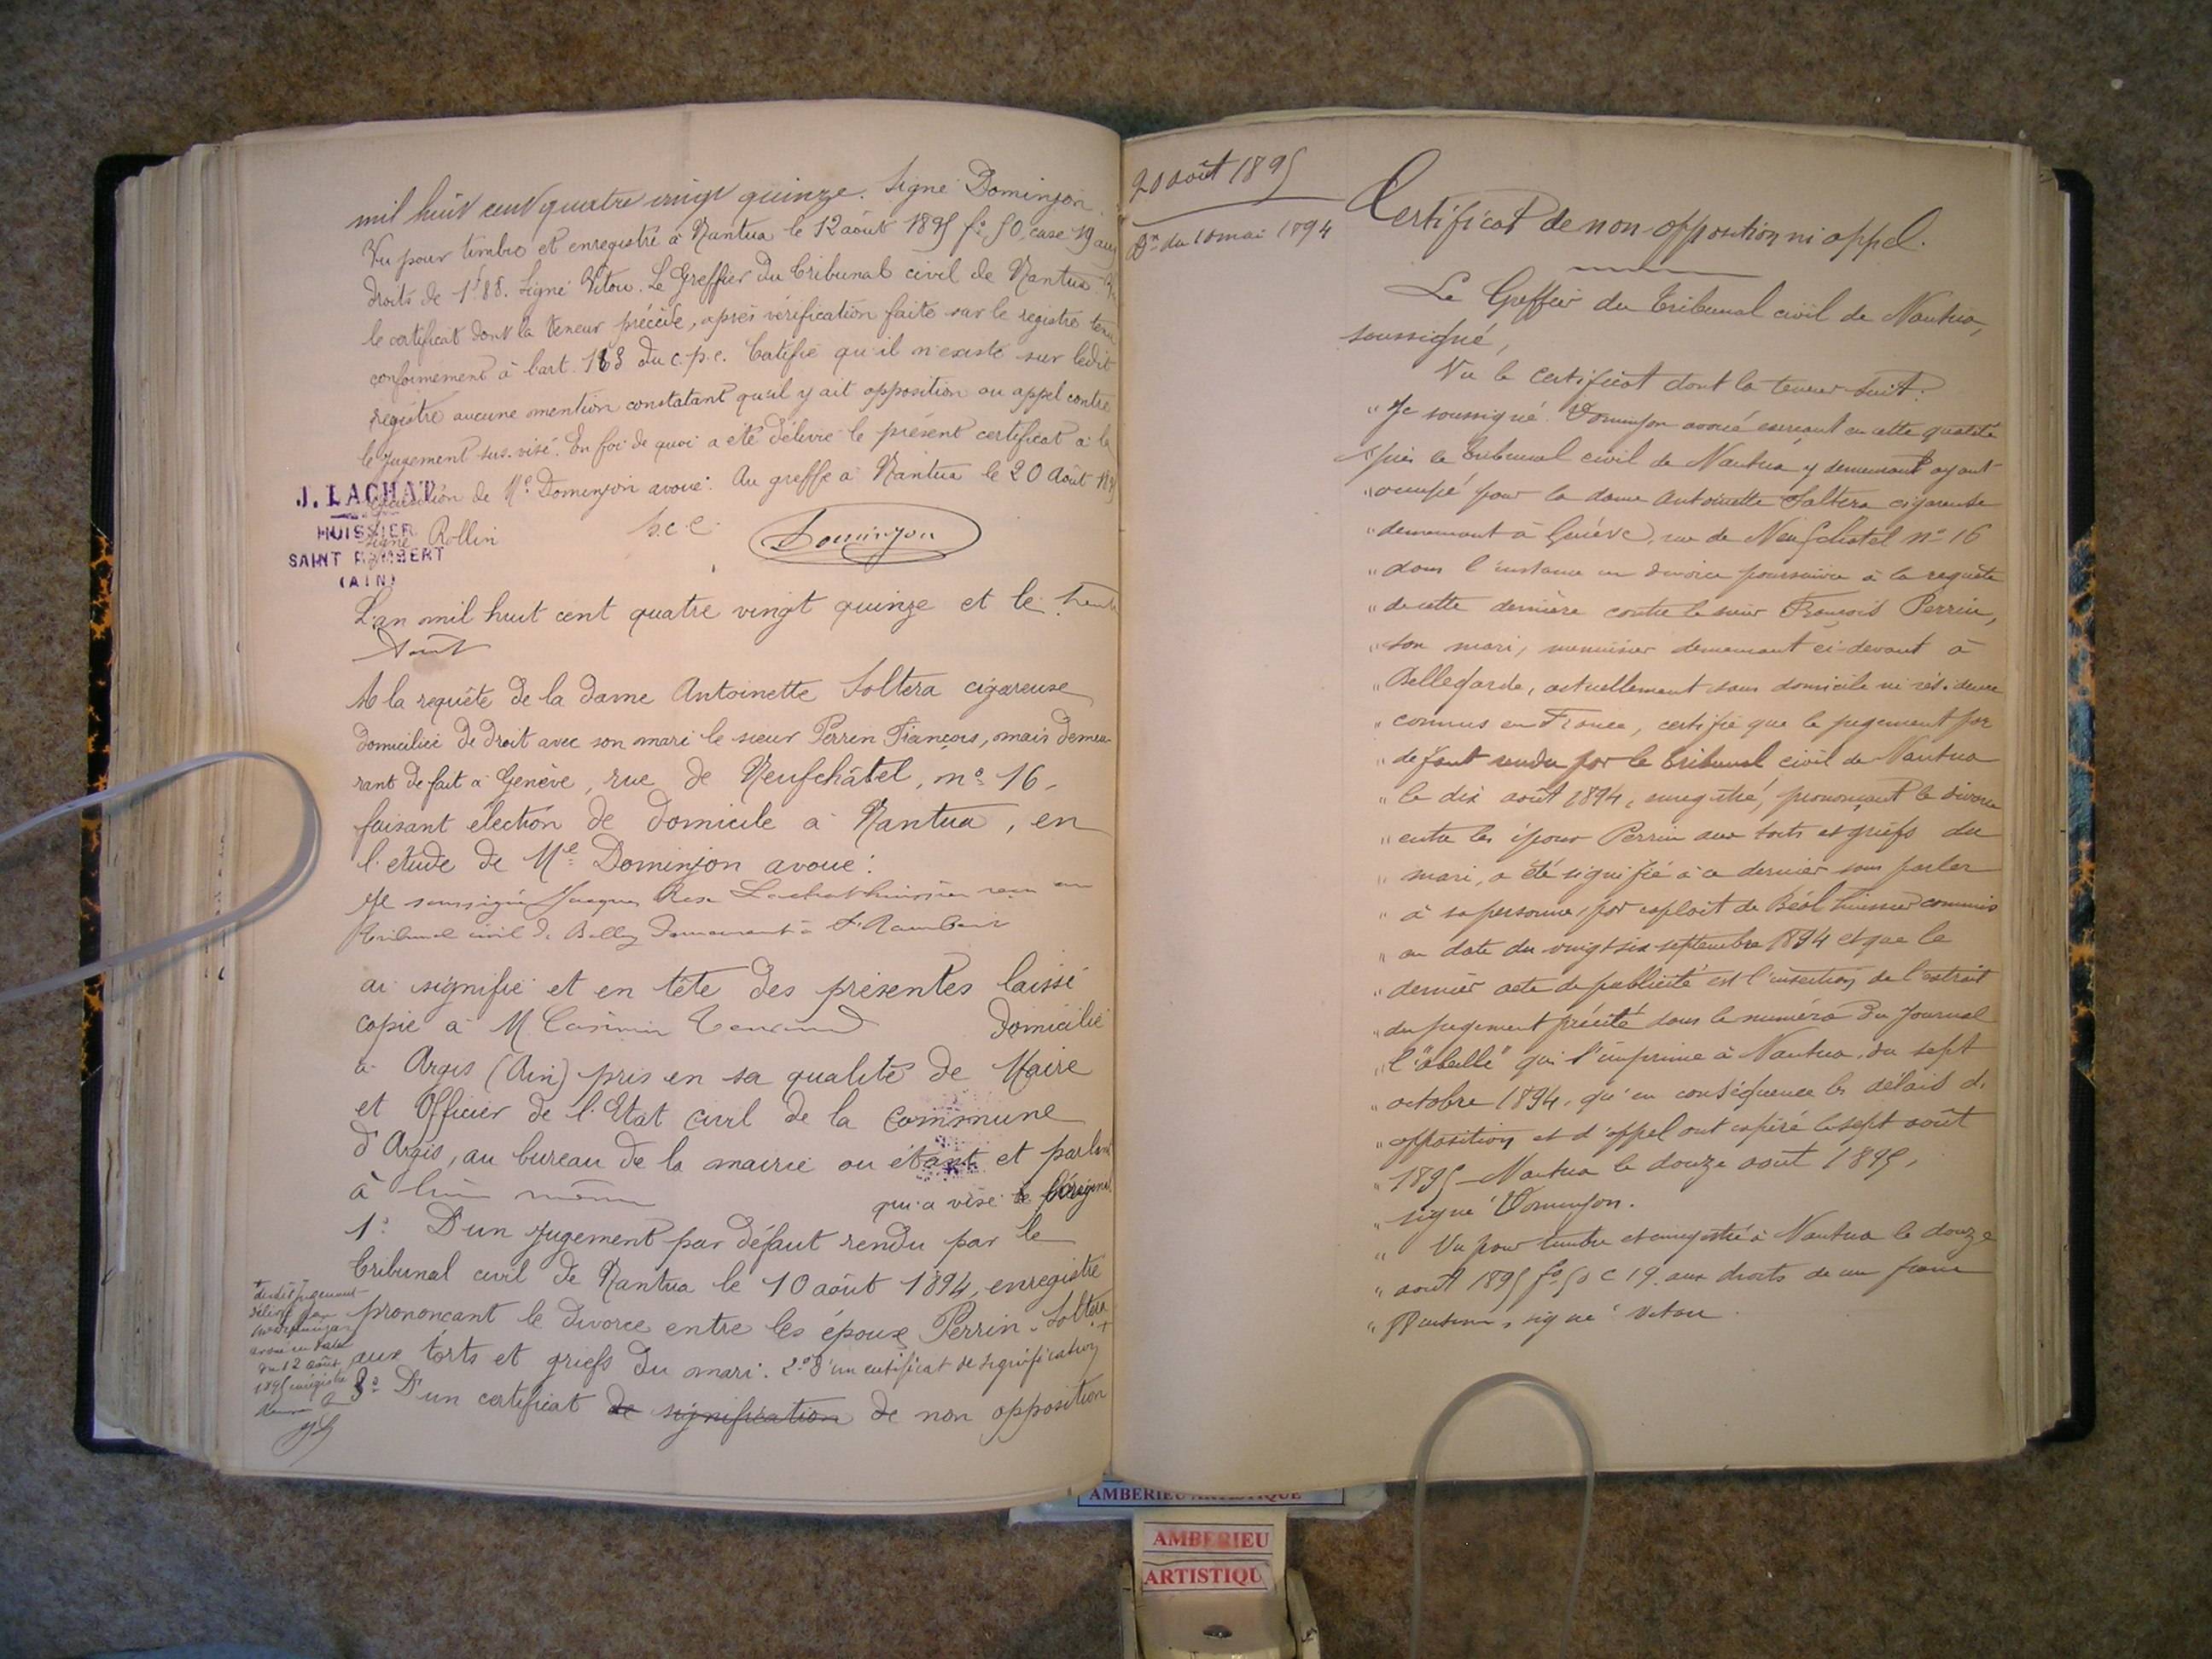 mil huit cent quatre vingt quinze. Signé Dominjon.
Vu pour timbre et enregistré à Nantua le 12 août 1895 f° 50, case 19 aux
droits de 1f88. Signé Vitou. Le Greffier du Tribunal civil de Nantua Vu
le certificat dont la teneur précède, après vérification faite sur le registre tenu
conformément à l'art. 163 du c.p.c. Certifie qu'il n'existe sur ledit
registre aucune mention constatant qu'il y ait opposition ou appel contre
le jugement sus-visé. En foi de quoi a été délivré le présent certificat à la
réquisition de Me Dominjon avoué. Au greffe à Nantua le 20 Août 1895
signé Rollin p.c.c. Dominjon
J. LACHAT
HUISSIER
SAINT RAMBERT
(AIN)
L'an mil huit cent quatre vingt quinze et le trente
Août
A la requête de la dame Antoinette Soltera cigareuse
domiciliée de droit avec son mari le sieur Perrin François, mais demeu-
rant de fait à Genève, rue de Neufchâtel, n° 16,
faisant élection de domicile à Nantua, en
l'étude de Me Dominjon avoué:
Je soussigné Jacques Lachat huissier
tribunal civil de Belley demeurant à St Rambert
ai signifié et en tête des présentes laissé
copie à M. Casimir domicilié
à Argis (Ain) pris en sa qualité de Maire
et Officier de l'Etat civil de la commune
d'Argis, au bureau de la mairie où étant et parlant
à lui même qui a visé l'original
1° D'un jugement par défaut rendu par le
tribunal civil de Nantua le 10 août 1894, enregistré
prononçant le divorce entre les époux Perrin-Soltera
aux torts et griefs du mari: 2° d'un certificat de signification +
3° D'un certificat de signification de non opposition
+ dudit jugement
délivré par
Me Dominjon
avoué en date
du 12 août
1895 enregistré
20 août 1895
Dn du 10 mai 1894
Certificat de non-opposition ni appel.
Le Greffier du Tribunal civil de Nantua,
soussigné,
Vu le certificat dont la teneur suit:
"Je soussigné Dominjon avoué exerçant en cette qualité
"près le Tribunal civil de Nantua y demeurant ayant
"occupé pour la dame Antoinette Saltera cigareuse
"demeurant à Genève, rue de Neufchâtel n° 16
"dans l'instance en divorce poursuivie à la requête
"de cette dernière contre le sieur François Perrin,
"son mari, menuisier demeurant ci-devant à
"Bellegarde, actuellement sans domicile ni résidence
"connus en France, certifie que le jugement par
"défaut rendu par le Tribunal civil de Nantua
"le dix août 1894, enregistré, prononçant le divorce
"entre les époux Perrin aux torts et griefs du
"mari, a été signifié à ce dernier sans parler
"à sa personne, par exploit de Béol huissier commis
"en date du vingt-six septembre 1894 et que le
"dernier acte de publicité est l'insertion de l'extrait
"du jugement précité dans le numéro du Journal
"l'"abeille" qui s'imprime à Nantua, du sept
"octobre 1894, qu'en conséquence les délais d'
"opposition et d'appel ont expiré le sept août
"1895 - Nantua le douze août 1895,
"signé Dominjon.
"Vu pour timbre et enregistré à Nantua le douze
"août 1895 f° 50 c 19. aux droits de un franc
" signé Vitou
AMBERIEU ARTISTIQUE
AMBERIEU
ARTISTIQU